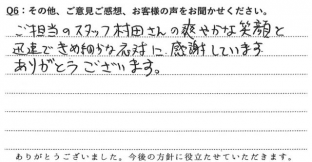 Q6：その他、ご意見ご感想、お客様の声をお聞かせください。
ご担当のスタッフ村田さんの爽やかな笑顔と
迅速できめ細かな応対に感謝しています
ありがとうございます。
ありがとうございました。今後の方針に役立たせていただきます。